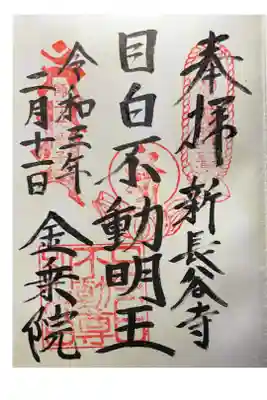 奉拝
新長谷寺
目白不動明王
令和三年
二月十一日
金乗院